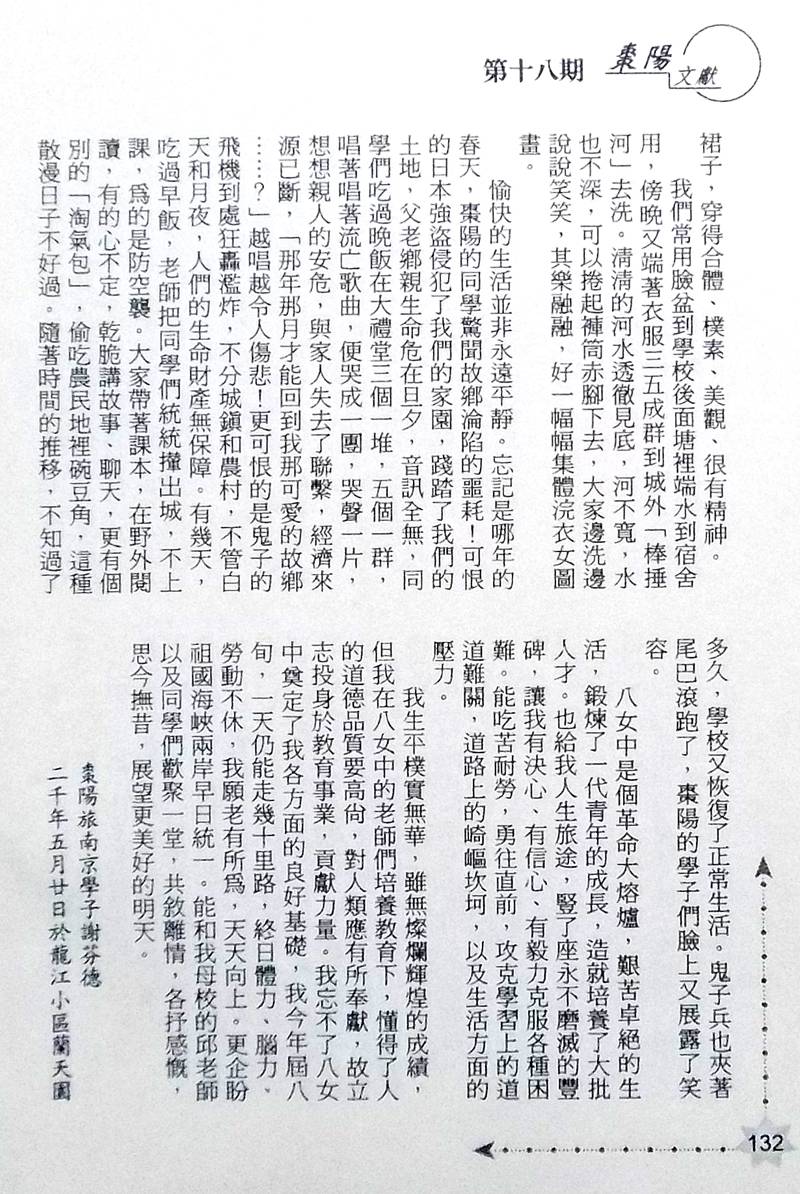 第十八期 棗陽文獻
裙子，穿得合體、樸素、美觀、很有精神。
我們常用臉盆到學校後面塘裡端水到宿舍
用，傍晚又端著衣服三五成群到城外「棒捶
河」去洗。清清的河水透徹見底，河不寬，水
也不深，可以捲起褲筒赤腳下去，大家邊洗邊
說說笑笑，其樂融融，好一幅幅集體浣衣女圖
畫。
愉快的生活並非永遠平靜。忘記是哪年的
春天，棗陽的同學驚聞故鄉淪陷的噩耗！可恨
的日本強盜侵犯了我們的家園，踐踏了我們的
土地，父老鄉親生命危在旦夕，音訊全無，同
學們吃過晚飯在大禮堂三個一堆，五個一群，
唱著唱著流亡歌曲，便哭成一團，哭聲一片，
想想親人的安危，與家人失去了聯繫，經濟來
源已斷，「那年那月才能回到我那可愛的故鄉
……？」越唱越令人傷悲！更可恨的是鬼子的
飛機到處狂轟濫炸，不分城鎮和農村，不管白
天和月夜，人們的生命財產無保障。有幾天，
吃過早飯，老師把同學們統統攆出城，不上
課，爲的是防空襲。大家帶著課本，在野外閱
讀，有的心不定，乾脆講故事、聊天，更有個
別的「淘氣包」，偷吃農民地裡碗豆角，這種
散漫日子不好過。隨著時間的推移，不知過了
多久，學校又恢復了正常生活。鬼子兵也夾著
尾巴滾跑了，棗陽的學子們臉上又展露了笑
容。
八女中是個革命大熔爐，艱苦卓絕的生
活，鍛煉了一代青年的成長，造就培養了大批
人才。也給我人生旅途，豎了座永不磨滅的豐
碑，讓我有決心、有信心、有毅力克服各種困
難。能吃苦耐勞，勇往直前，攻克學習上的道
道難關，道路上的崎嶇坎坷，以及生活方面的
壓力。
我生平樸實無華，雖無燦爛輝煌的成績，
但我在八女中的老師們培養教育下，懂得了人
的道德品質要高尚，對人類應有所奉獻，故立
志投身於教育事業，貢獻力量。我忘不了八女
中奠定了我各方面的良好基礎，我今年屆八
旬，一天仍能走幾十里路，終日體力、腦力、
勞動不休，我願老有所爲，天天向上。更企盼
祖國海峽兩岸早日統一。能和我母校的邱老師
以及同學們歡聚一堂，共敘離情，各抒感慨，
思今撫昔，展望更美好的明天。
棗陽旅南京學子謝芬德
二千年五月廿日於龍江小區蘭天園
132